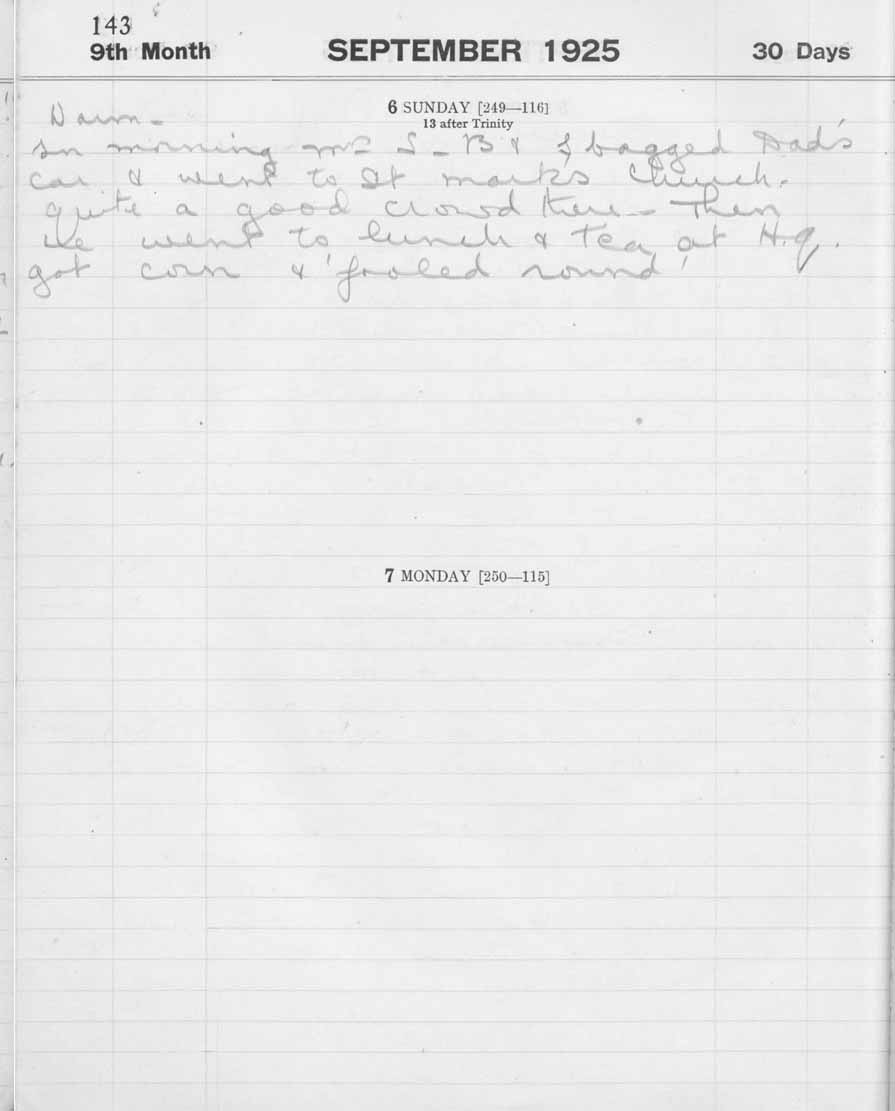 143
9th Month SEPTEMBER 1925 30 Days
6 SUNDAY [249—116]
13 after Trinity
Warm -
In morning Mrs S-B & I bagged Dad's
car & went to St Marks Church.
quite a good crowd there - Then
we went to lunch & Tea at H.q.
got corn & 'fooled round'
7 MONDAY [250—115]